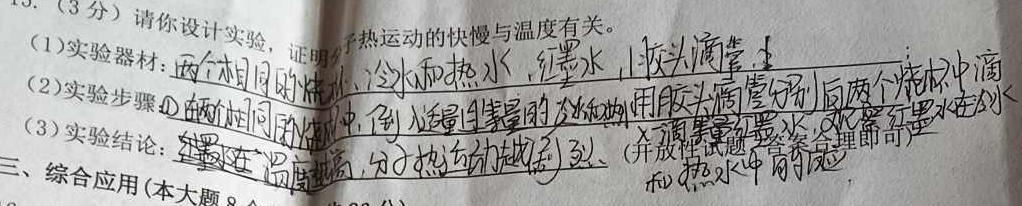 15.(3分)请你设计实验,证明分子热运动的快慢与温度有关。
(1)实验器材:两个相同的烧杯、冷水和热水,红墨水,胶头滴管
(2)实验步骤:①在两个相同的烧杯中,倒入适量等量的冷水和热水,用胶头滴管分别向两个烧杯中滴
入一滴等量红墨水,观察红墨水在冷水
和热水中的
(3)实验结论:温度越高,分子热运动越剧烈、(开放性试题,答案合理即可)
三、综合应用(本大题